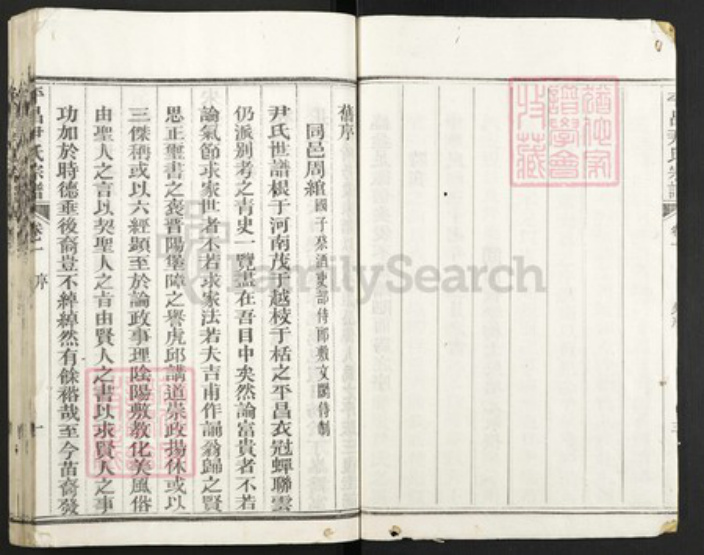 舊序
同邑周綰國子祭酒吏部侍郎敷文閣待制
尹氏世譜根于河南茂于越棱于栝之平昌衣冠蟬聯雲
仍派別考之青史一覽盡在吾目中矣然論富貴者不若
論氣節求家世者不若求家法若夫吉甫作誦翁歸之賢
思正璽書之褒晋陽堡障之譽虎邱講道崇政揚休或以
三傑稱或以六經顯至於論政事理陰陽敷教化美風俗
由聖人之言以契聖人之肯由賢人之書以求賢人之事
功加於時德垂後裔豈不綽綽然有餘裕哉至今苗裔發
平昌尹氏宗譜 卷一 序 十
平昌尹氏宗譜
譜學會
收藏
FamilySearch